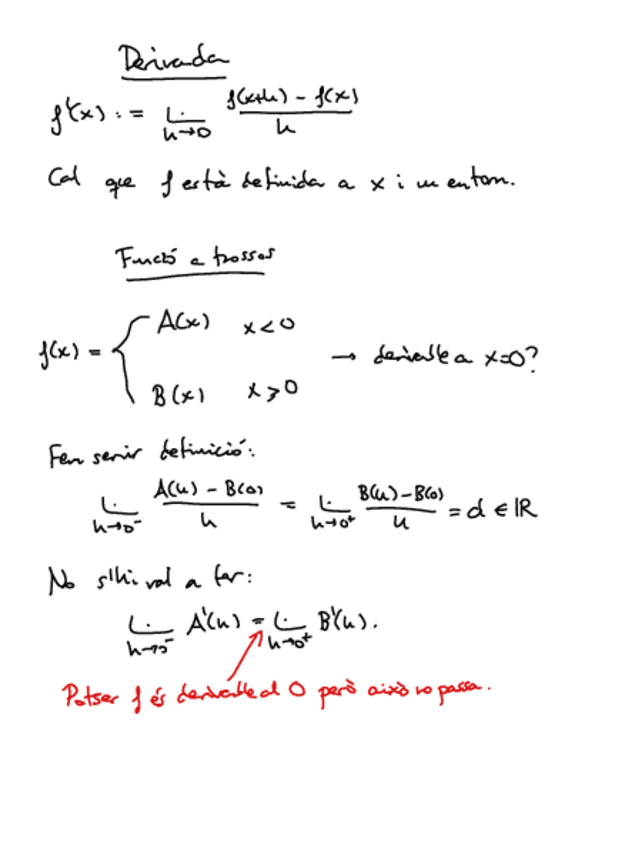 Derivada
f'(x) := lim_{h→0} \frac{f(x+h) - f(x)}{h}
Cal que f està definida a x i un entorn.
Funció a trossos
f(x) = { A(x) x < 0
B(x) x ≥ 0
→ derivable a x=0?
Fem servir definició:
lim_{h→0⁻} \frac{A(h) - B(0)}{h} = lim_{h→0⁺} \frac{B(h) - B(0)}{h} = d ∈ ℝ
No s'hi val a fer:
lim_{h→0⁻} A'(h) = lim_{h→0⁺} B'(h).
Potser f és derivable al 0 però això no passa.